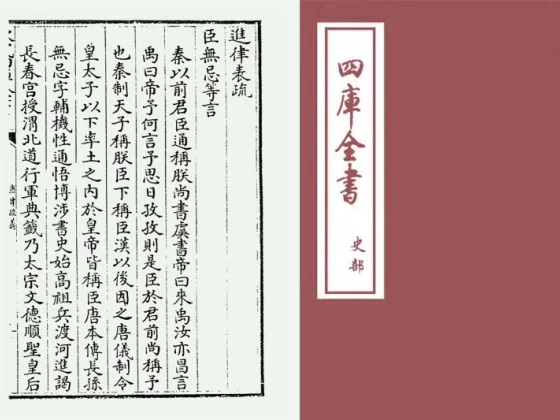 進律表疏
臣無忌等言
秦以前君臣通稱朕尚書虞書帝曰來禹汝亦昌言
禹曰帝予何言予思日孜孜則是臣於君前尚稱予
也秦制天子稱朕臣下稱臣漢以後因之唐儀制令
皇太子以下率土之内於皇帝皆稱臣唐本傳長孫
無忌字輔機性通悟博涉書史始高祖兵渡河進謁
長春宫授渭北道行軍典籤乃太宗文德順聖皇后
唐律疏義
四庫全書
史部